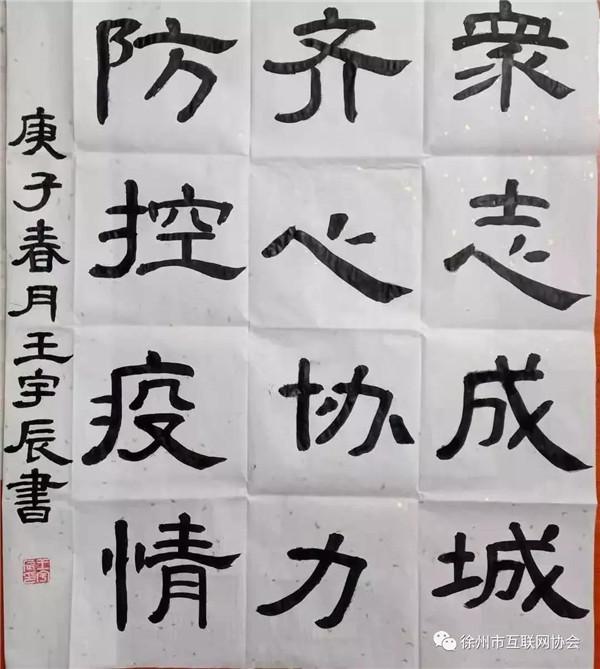 衆志成城
齐心协力
防控疫情
庚子春月王宇辰書
徐州市互联网协会